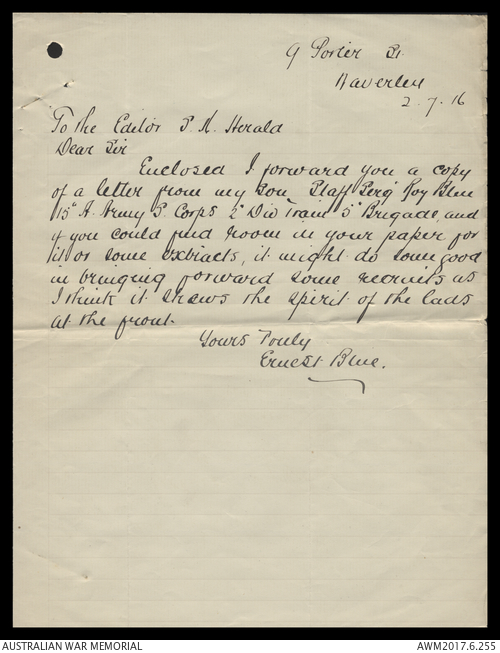 9 Porter St.
Waverley
2.7.16
To the Editor S. M. Herald
Dear Sir
Enclosed I forward you a copy
of a letter from my son Staff Serg Roy Blue
15th A. Army S Corps 2nd Div Train 5th Brigade, and
if you could find room in your paper for
it or some extracts, it might do some good
in bringing forward some recruits as
I think it shews the spirit of the lads
at the front.
Yours Truly
Ernest Blue.
AUSTRALIAN WAR MEMORIAL
AWM2017.6.255